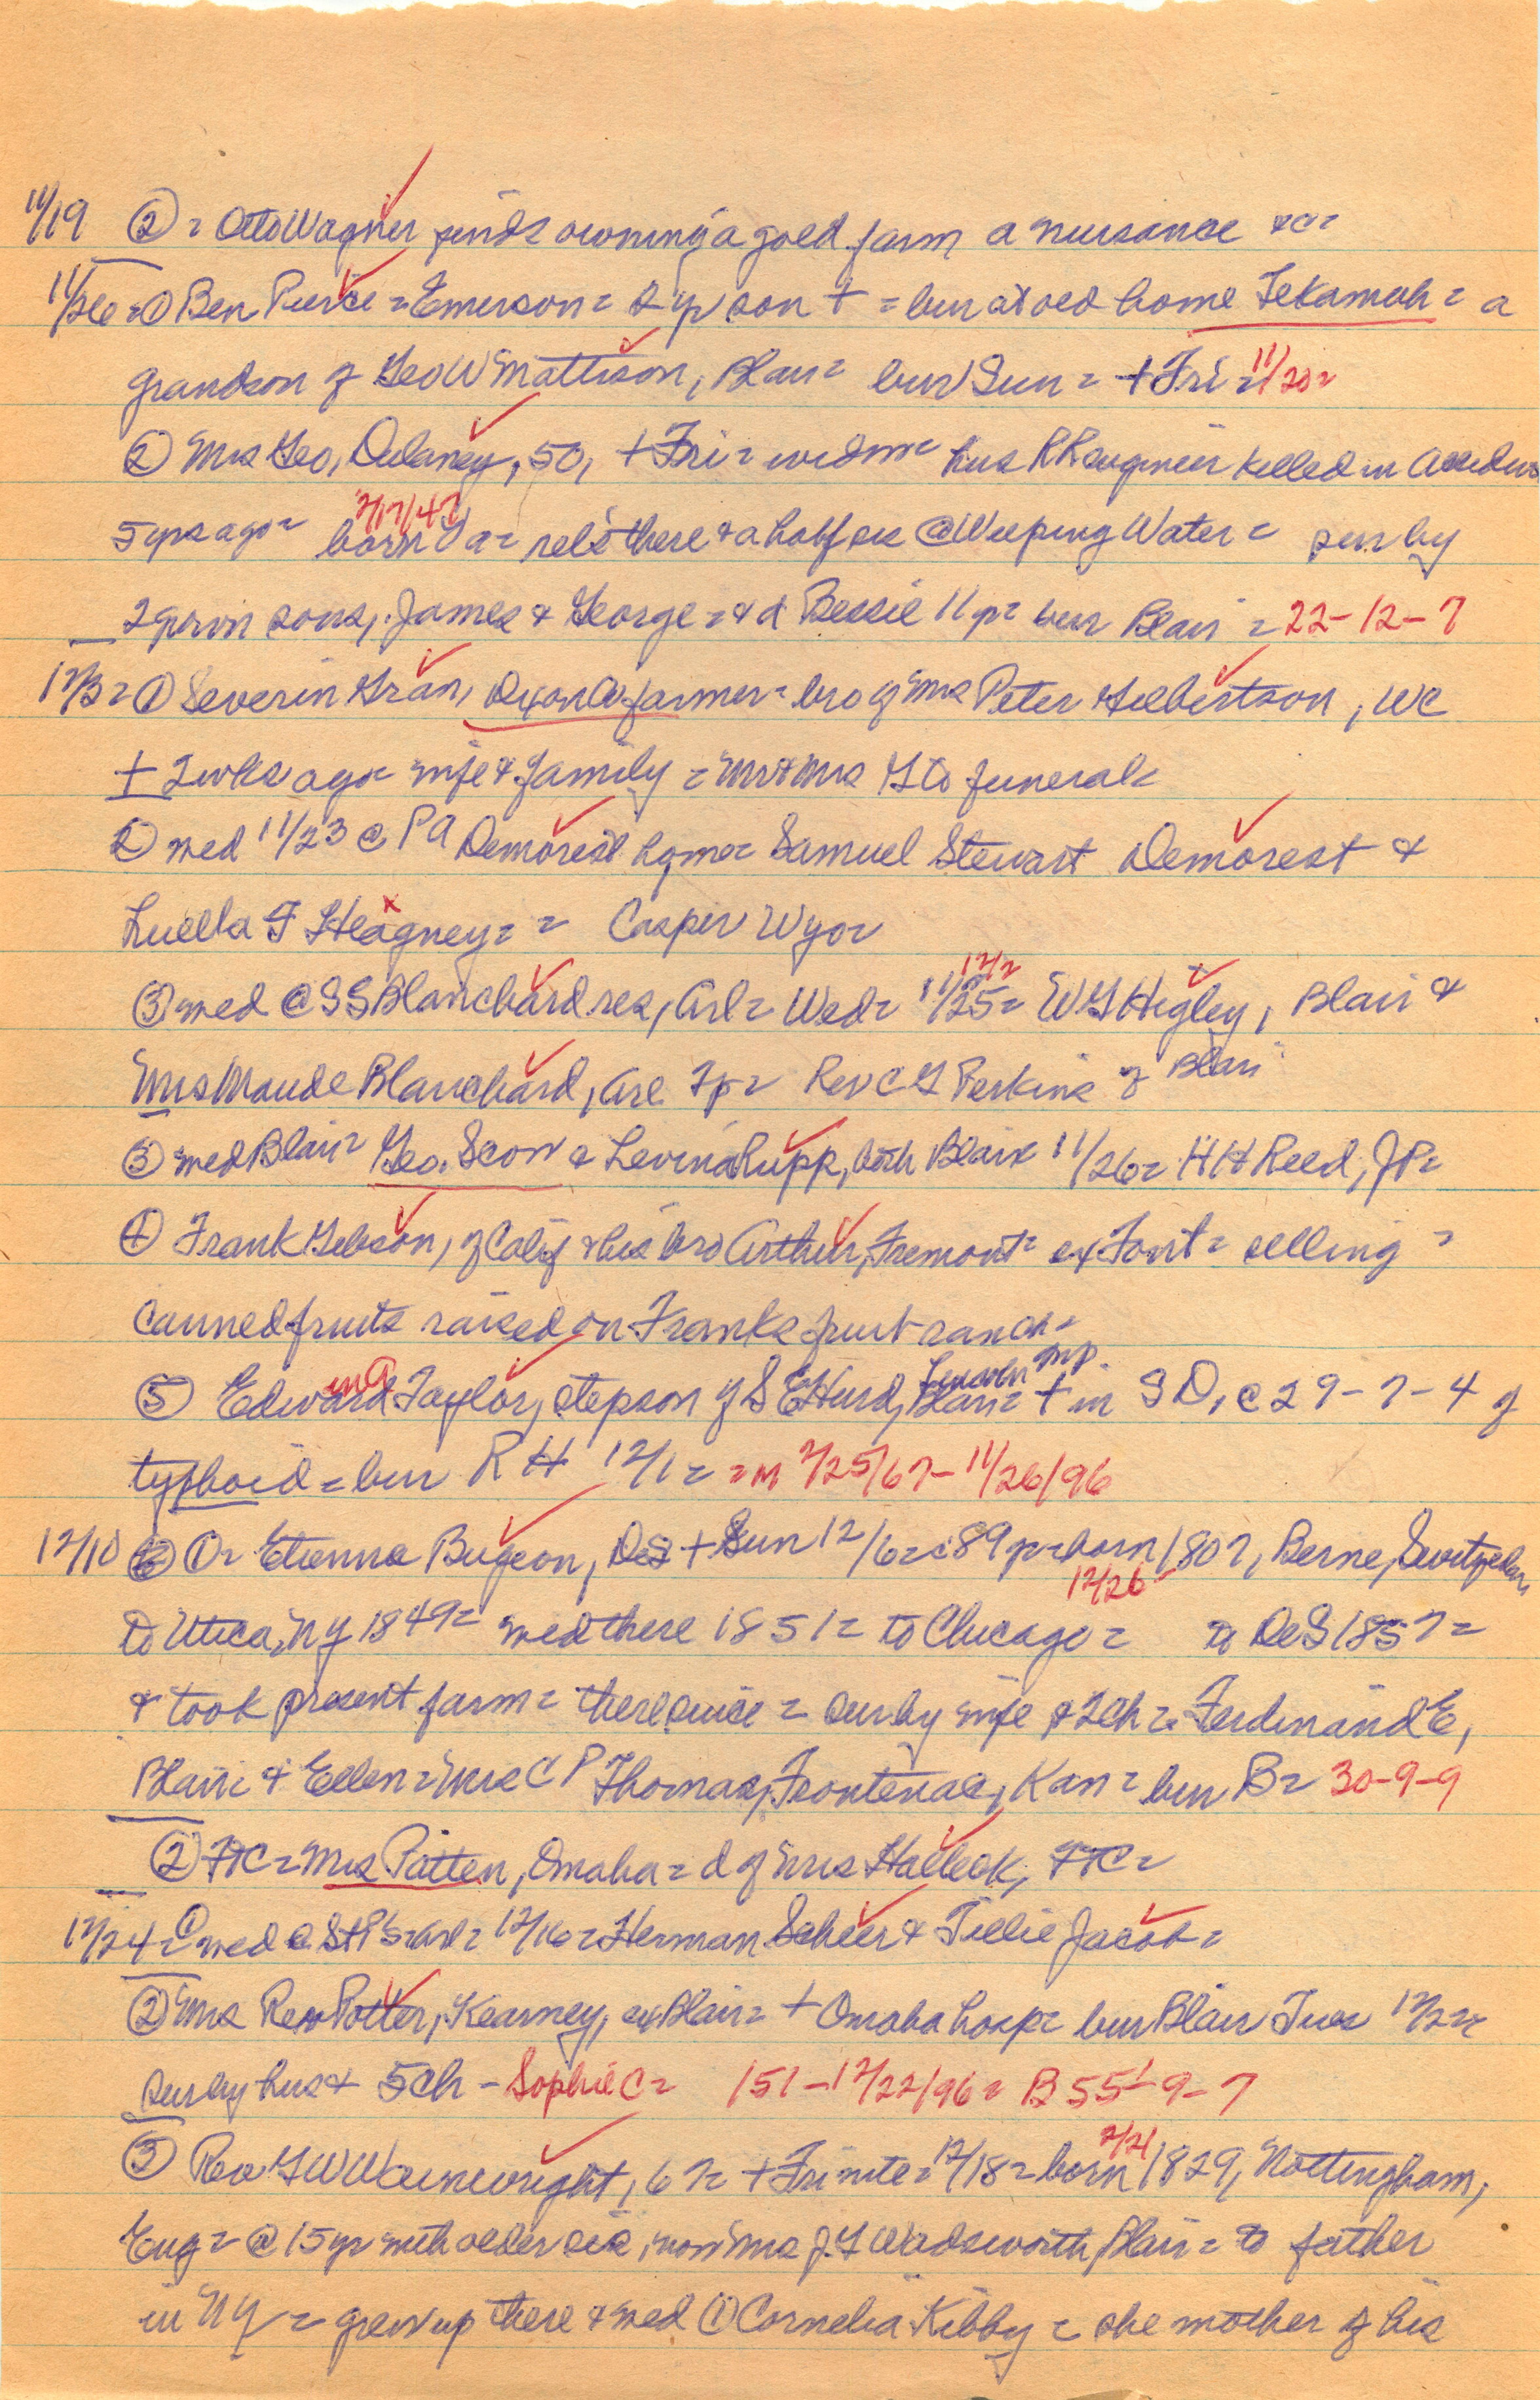 11/19 ② = Otto Wagner finds owning a good farm a nuisance &c=
11/26 = ① Ben Peirce = Emerson = 2 yr son + = bur at old home Tekamah = a
grandson of Geo W Mattison, Blair = bur Sun = + Fri = 11/20=
② Mrs Geo, Delaney, 50, + Fri = widow = hus RR engineer killed in
5 yrs ago = born 2/17/47 Ia = rel's there & a half sis @ Weeping Water = sur by
2 grown sons, James & George = & d Bessie 11 yr = bur Blair = 22-12-7
12/3 = ① Severin Gran, farmer = bro of Mrs Peter Gilbertson, WC
+ 2 wks ago = wife & family = Mr & Mrs G to funeral =
② med 11/23 @ P A Demorest home = Samuel Stewart Demorest &
Luella F Heagney = = Casper Wyo =
③ med @ S S Blanchard res, Arl = Wed = 11/25 = 12/2 W G Higley, Blair &
Mrs Maude Blanchard, Arl Tp = Rev C G Perkins of Blair
③ med Blair = Geo. Scow & Levina Rupp, both Blair 11/26 = H H Reed, JP =
④ Frank Gibson, of Calif & his bro Arthur, Fremont = ex Font = selling =
canned fruits raised on Franks fruit ranch =
⑤ Edward Taylor, stepson of S E Hurd, Blair = Lincoln Imp. + in S D, @ 29-7-4 of
typhoid = bur R H 12/1 = = m 2/25/67 - 11/26/96
12/10 ① = Etienne Bugeon, DeS + Sun 12/6 = @ 89 yr = born 1807, 12/26 Berne,
to Utica, NY 1849 = med there 1851 = to Chicago = to DeS 1857 =
& took present farm = there since = sur by wife & 2 ch = Ferdinand E,
Blair & Ellen = Mrs C P Thomas, Frontenac, Kan = bur B = 30-9-9
② FTC = Mrs Patten, Omaha = d of Mrs Halleck, FTC =
12/24 = ① med @ St P's = Arl = 12/16 = Herman Scheer & Tillie Jacob =
② Mrs Rev Potter, Kearney, ex Blair = + Omaha hosp = bur Blair Tues 12/22 =
sur by hus & 5 ch - Sophie C = 151 - 12/22/96 = B 55-9-7
③ Rev G W Wainwright, 67 = + Fri nite = 12/18 = born 2/21 1829, Nottingham,
Eng = @ 15 yr with older sis, now Mrs J. G Wadsworth, Blair = to father
in NY = grew up there & med ① Cornelia Kibby = she mother of his